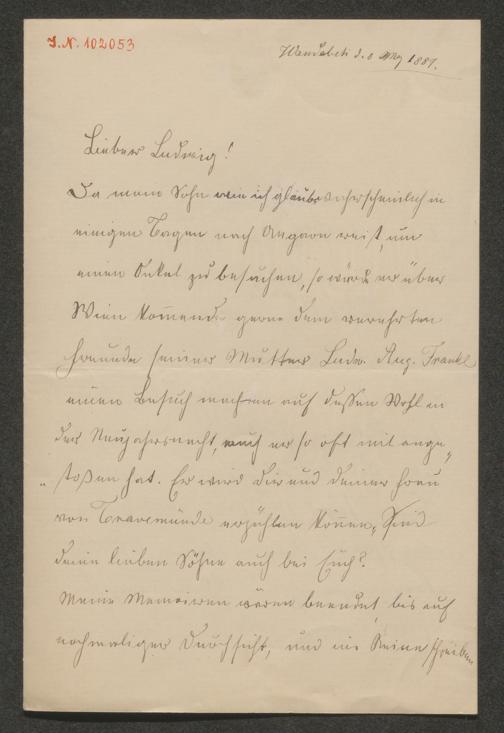 I.N. 102053
1889.
Lieber Ludwig!
Da mein Sohn wie ich glaube wahrscheinlich in
einigen Tagen nach Ungarn reist, um
einen Onkel zu besuchen, so würde er über
Wien kommend gerne dem verehrten
Freunde seiner Mutter Ludw. Aug. Frankl
einen Besuch machen auf dessen Wohl in
der Neujahrsnacht, auch er so oft mit ange„
„stoßen hat. Er wird dir und deiner Frau
von Travemünde erzählen können, Sind
deine lieben Söhne auch bei Euch?
Meine Memoiren wären beendet, bis auf
nochmaliger Durchsicht, und die Reine schreiben